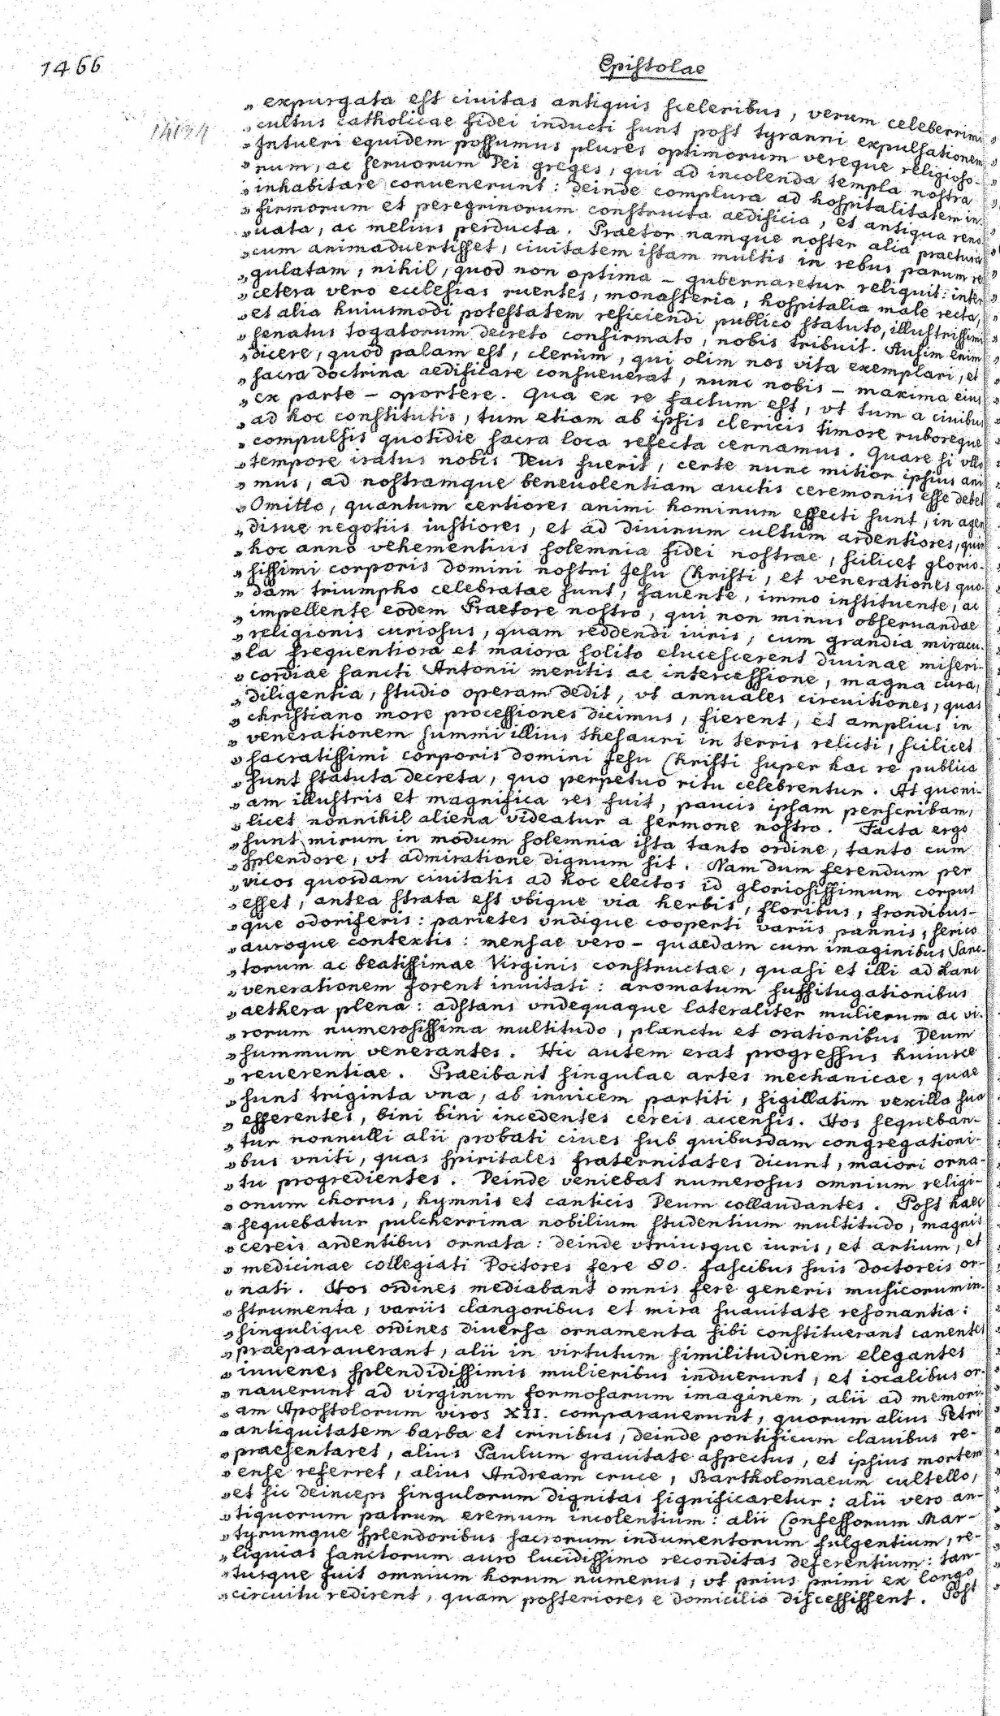 1466
Epistolae
„ expurgata est civitas antiquis sceleribus, verum celeberrimi
„ cultus catholicae fidei inducti sunt post tyranni expulsationem
„ Intueri equidem possumus plures optimorum vereque religioso-
„ rum, ac servorum Dei greges, qui ad incolenda templa nostra
„ inhabitare convenerunt: deinde complura ad hospitalitatem in
„ firmorum et peregrinorum constructa aedificia, et antiqua reno
„ uata, ac melius perducta. Praetor namque noster alia praetura
„ cum animadvertisset, civitatem istam multis in rebus parum re
„ gulatam, nihil, quod non optima – gubernaretur reliquit: inter
„ cetera vero ecclesias ruentes, monasteria, hospitalia male recta,
„ et alia huiusmodi potestatem reficiendi publico statuto, illustrissimi
„ senatus togatorum decreto confirmato, nobis tribuit. Ausim enim
„ dicere, quod palam est, clerum, qui olim nos vita exemplari, et
„ sacra doctrina aedificare consueverat, nunc nobis – maxima eius
„ ex parte – oportere. Qua ex re factum est, vt tum a civibus
„ ad hoc constitutis, tum etiam ab ipsis clericis timore ruboreque
„ compulsis quotidie sacra loca refecta cernamus. Quare si vllo
„ tempore iratus nobis Deus fuerit, certe nunc mitior ipsius ani
„ mus, ad nostramque benevolentiam auctis ceremoniis esse debet
„ Omitto, quantum certiores animi hominum effecti sunt, in agen
„ disue negotiis iustiores, et ad divinum cultum ardentiores, quin
„ hoc anno vehementius solemnia fidei nostrae, scilicet glorio-
„ sissimi corporis domini nostri Jesu Christi, et venerationes quo-
„ dam triumpho celebratae sunt, favente, immo instituente, ac
„ impellente eodem Praetore nostro, qui non minus observandae
„ religionis curiosus, quam reddendi iuris, cum grandia miracu-
„ la frequentiora et maiora solito elucescerent divinae miseri-
„ cordiae sancti Antonii meritis ac intercessione, magna cura,
„ diligentia, studio operam dedit, vt annuales circuitiones, quas
„ christiano more processiones dicimus, fierent, et amplius in
„ venerationem summi illius thesauri in terris relicti, scilicet
„ sacratissimi corporis domini Jesu Christi super hac re publica
„ sunt statuta decreta, quo perpetuo ritu celebrentur. At quoni-
„ am illustris et magnifica res fuit, paucis ipsam perscribam,
„ licet nonnihil aliena videatur a sermone nostro. Facta ergo
„ sunt mirum in modum solemnia ista tanto ordine, tanto cum
„ splendore, vt admiratione dignum sit. Nam dum ferendum per
„ vicos quosdam civitatis ad hoc electos id gloriosissimum corpus
„ esset, antea strata est vbique via herbis, floribus, frondibus-
„ que odoriferis: parietes vndique cooperti variis pannis, serico
„ auroque contextis: mensae vero – quaedam cum imaginibus Sanc-
„ torum ac beatissimae Virginis constructae, quasi et illi ad hanc
„ venerationem forent invitati: aromatum suffitugationibus
„ aethera plena: adstans vndequaque lateraliter mulierum ac vi-
„ rorum numerosissima multitudo, planctu et orationibus Deum
„ summum venerantes. Hic autem erat progressus huiusce
„ reverentiae. Praeibant singulae artes mechanicae, quae
„ sunt triginta vna, ab invicem partiti, sigillatim vexilla sua
„ efferentes, bini bini incedentes cereis accensis. Hos sequeban-
„ tur nonnulli alii probati cives sub quibusdam congregationi-
„ bus vniti, quas spiritales fraternitates dicunt, maiori orna-
„ tu progredientes. Deinde veniebat numerosus omnium religi-
„ onum chorus, hymnis et canticis Deum collaudantes. Post haec
„ sequebatur pulcherrima nobilium studentium multitudo, magnis
„ cereis ardentibus ornata: deinde vtriusque iuris, et artium, et
„ medicinae collegiati Doctores fere 80. fascibus suis doctoreis or-
„ nati. Hos ordines mediabant omnis fere generis musicorum in-
„ strumenta, variis clangoribus et mira suavitate resonantia:
„ singulique ordines diversa ornamenta sibi constituerant canentes
„ praeparaverant, alii in virtutum similitudinem elegantes
„ iuvenes splendidissimis mulieribus induerunt, et iocalibus or-
„ naverunt ad virginum formosarum imaginem, alii ad memori-
„ am Apostolorum viros XII. comparaverunt, quorum alius Petri
„ antiquitatem barba et crinibus, deinde pontificum clavibus re-
„ praesentaret, alius Paulum gravitate aspectus, et ipsius mortem
„ ense referret, alius Andream cruce, Bartholomaeum cultello,
„ et sic deinceps singulorum dignitas significaretur: alii vero an-
„ tiquorum patrum eremum incolentium: alii Confessorum Mar-
„ tyrumque splendoribus sacrorum indumentorum fulgentium, re-
„ liquias sanctorum auro lucidissimo reconditas deferentium: tan-
„ tusque fuit omnium horum numerus, vt prius primi ex longo
„ circuitu redirent, quam posteriores e domicilio discessissent. Post